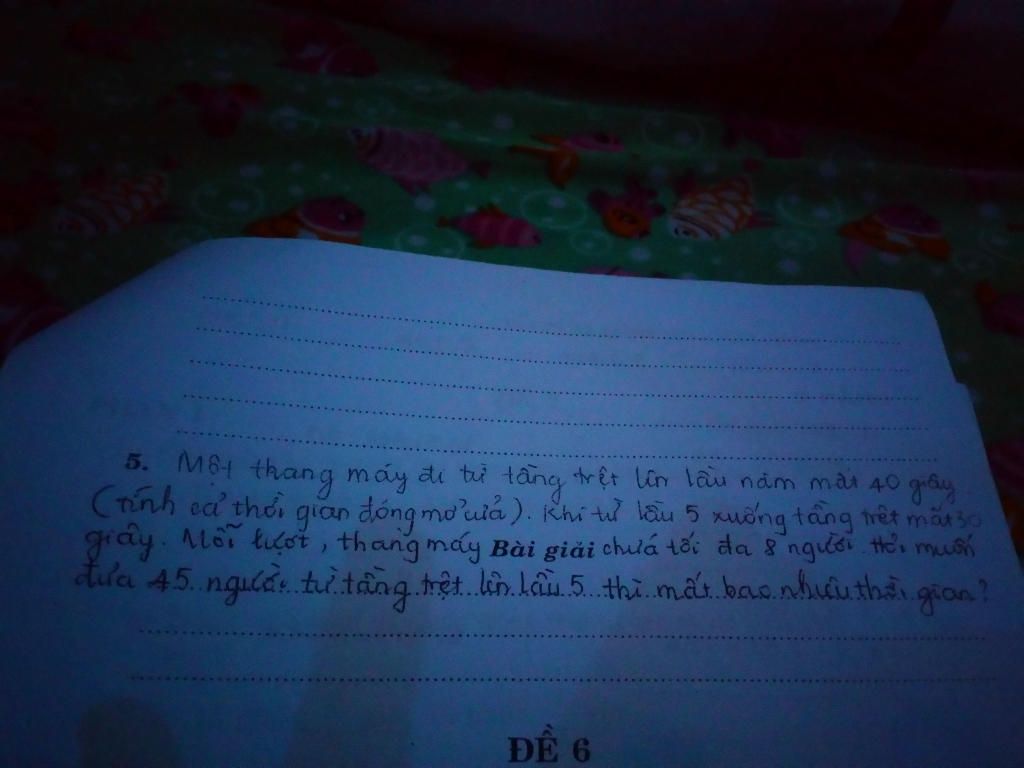 5. Một thang máy đi từ tầng trệt lên lầu năm mất 40 giây
(Tính cả thời gian đóng mở cửa). Khi từ lầu 5 xuống tầng trệt mất 30
giây. Mỗi lượt, thang máy Bài giải chứa tối đa 8 người. Hỏi muốn
đưa 45 người từ tầng trệt lên lầu 5 thì mất bao nhiêu thời gian?
ĐỀ 6